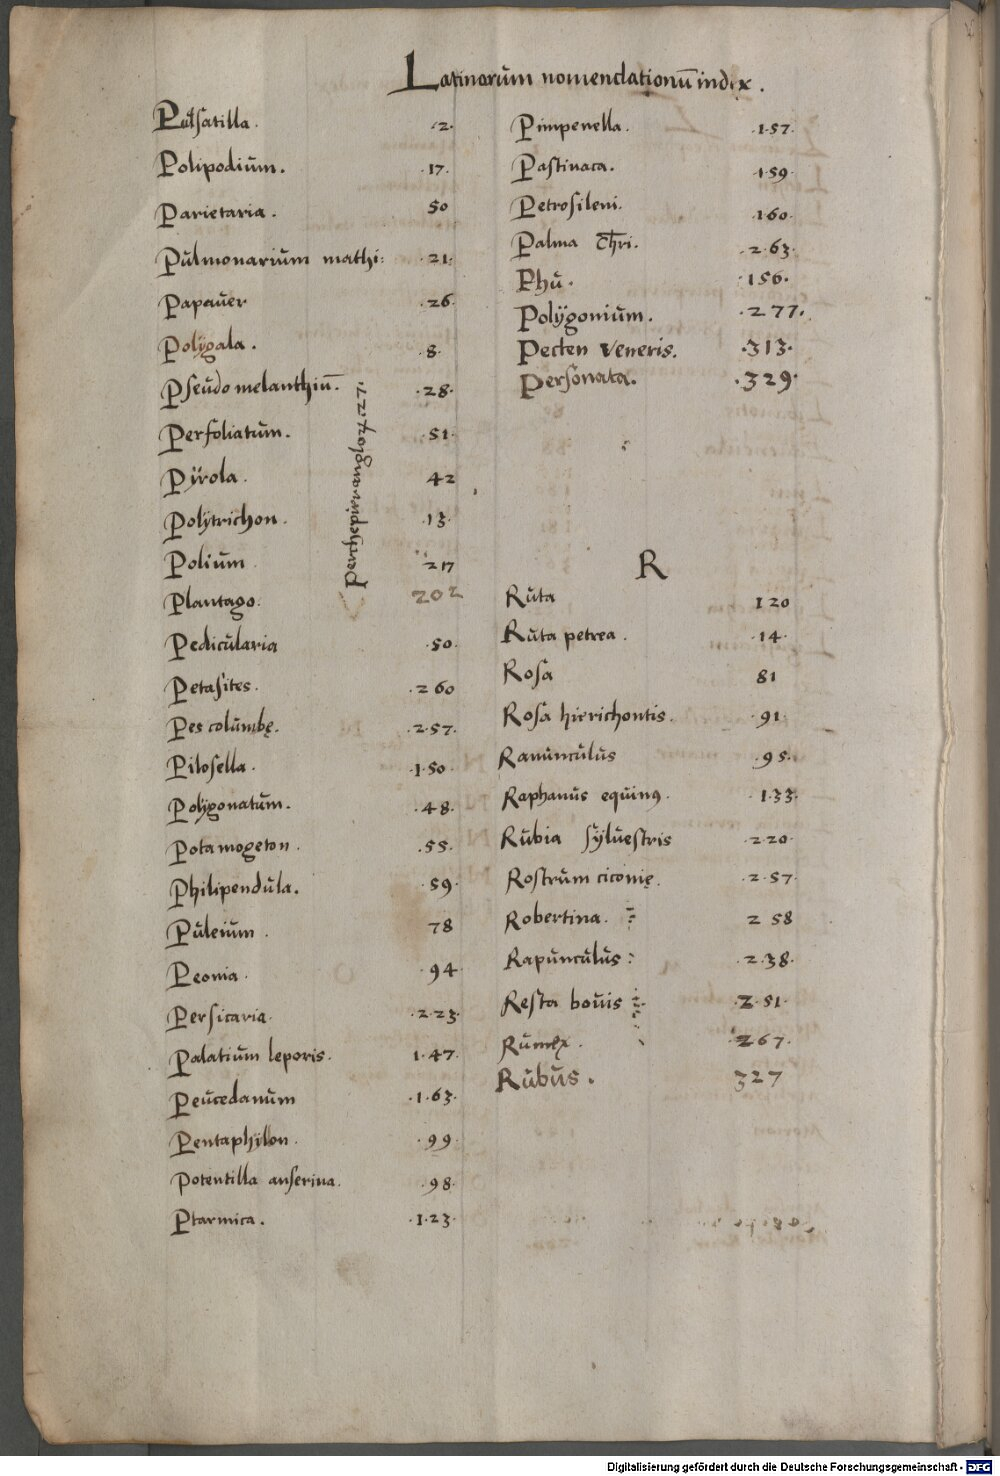 Latinarum nomenclationū index.
Pulsatilla. .2.
Polipodium. .17.
Parietaria. 50
Pulmonarium mathi: .21.
Papauer .26.
Polÿgala. .8.
Pseudomelanthiū. .28.
Perfoliatum. .51.
Pÿrola. 42
Polytrichon. .13.
Polium 217
Plantago. 202
Pedicularia .50.
Petasites. .260
Pes columbę. .257.
Pilosella. .150
Polÿgonatum. .48.
Potamogeton. .55.
Philipendula. .59.
Puleium. 78
Peonia. .94
Persicaria. .223.
Palatium leporis. 147.
Peucedanum .163.
Pentaphÿlon. .99.
Potentilla anserina. .98.
Ptarmica. .123.
Pimpenella. .157.
Pastinaca. .159.
Petrosileni. .160.
Palma Chri. .263.
Phu. .156.
Polÿgonium. .277.
Pecten Veneris. .313.
Personata. .329.
R
Ruta 120
Ruta petrea. .14.
Rosa 81
Rosa hierichontis. .91.
Ranunculus .95.
Raphanus equinꝰ. .133.
Rubia sÿluestris .220.
Rostrum ciconię. .257.
Robertina. 258
Rapunculus: .238.
Resta bouis .251.
Rumex. .267.
Rubus. 327
Digitalisierung gefördert durch die Deutsche Forschungsgemeinschaft - DFG